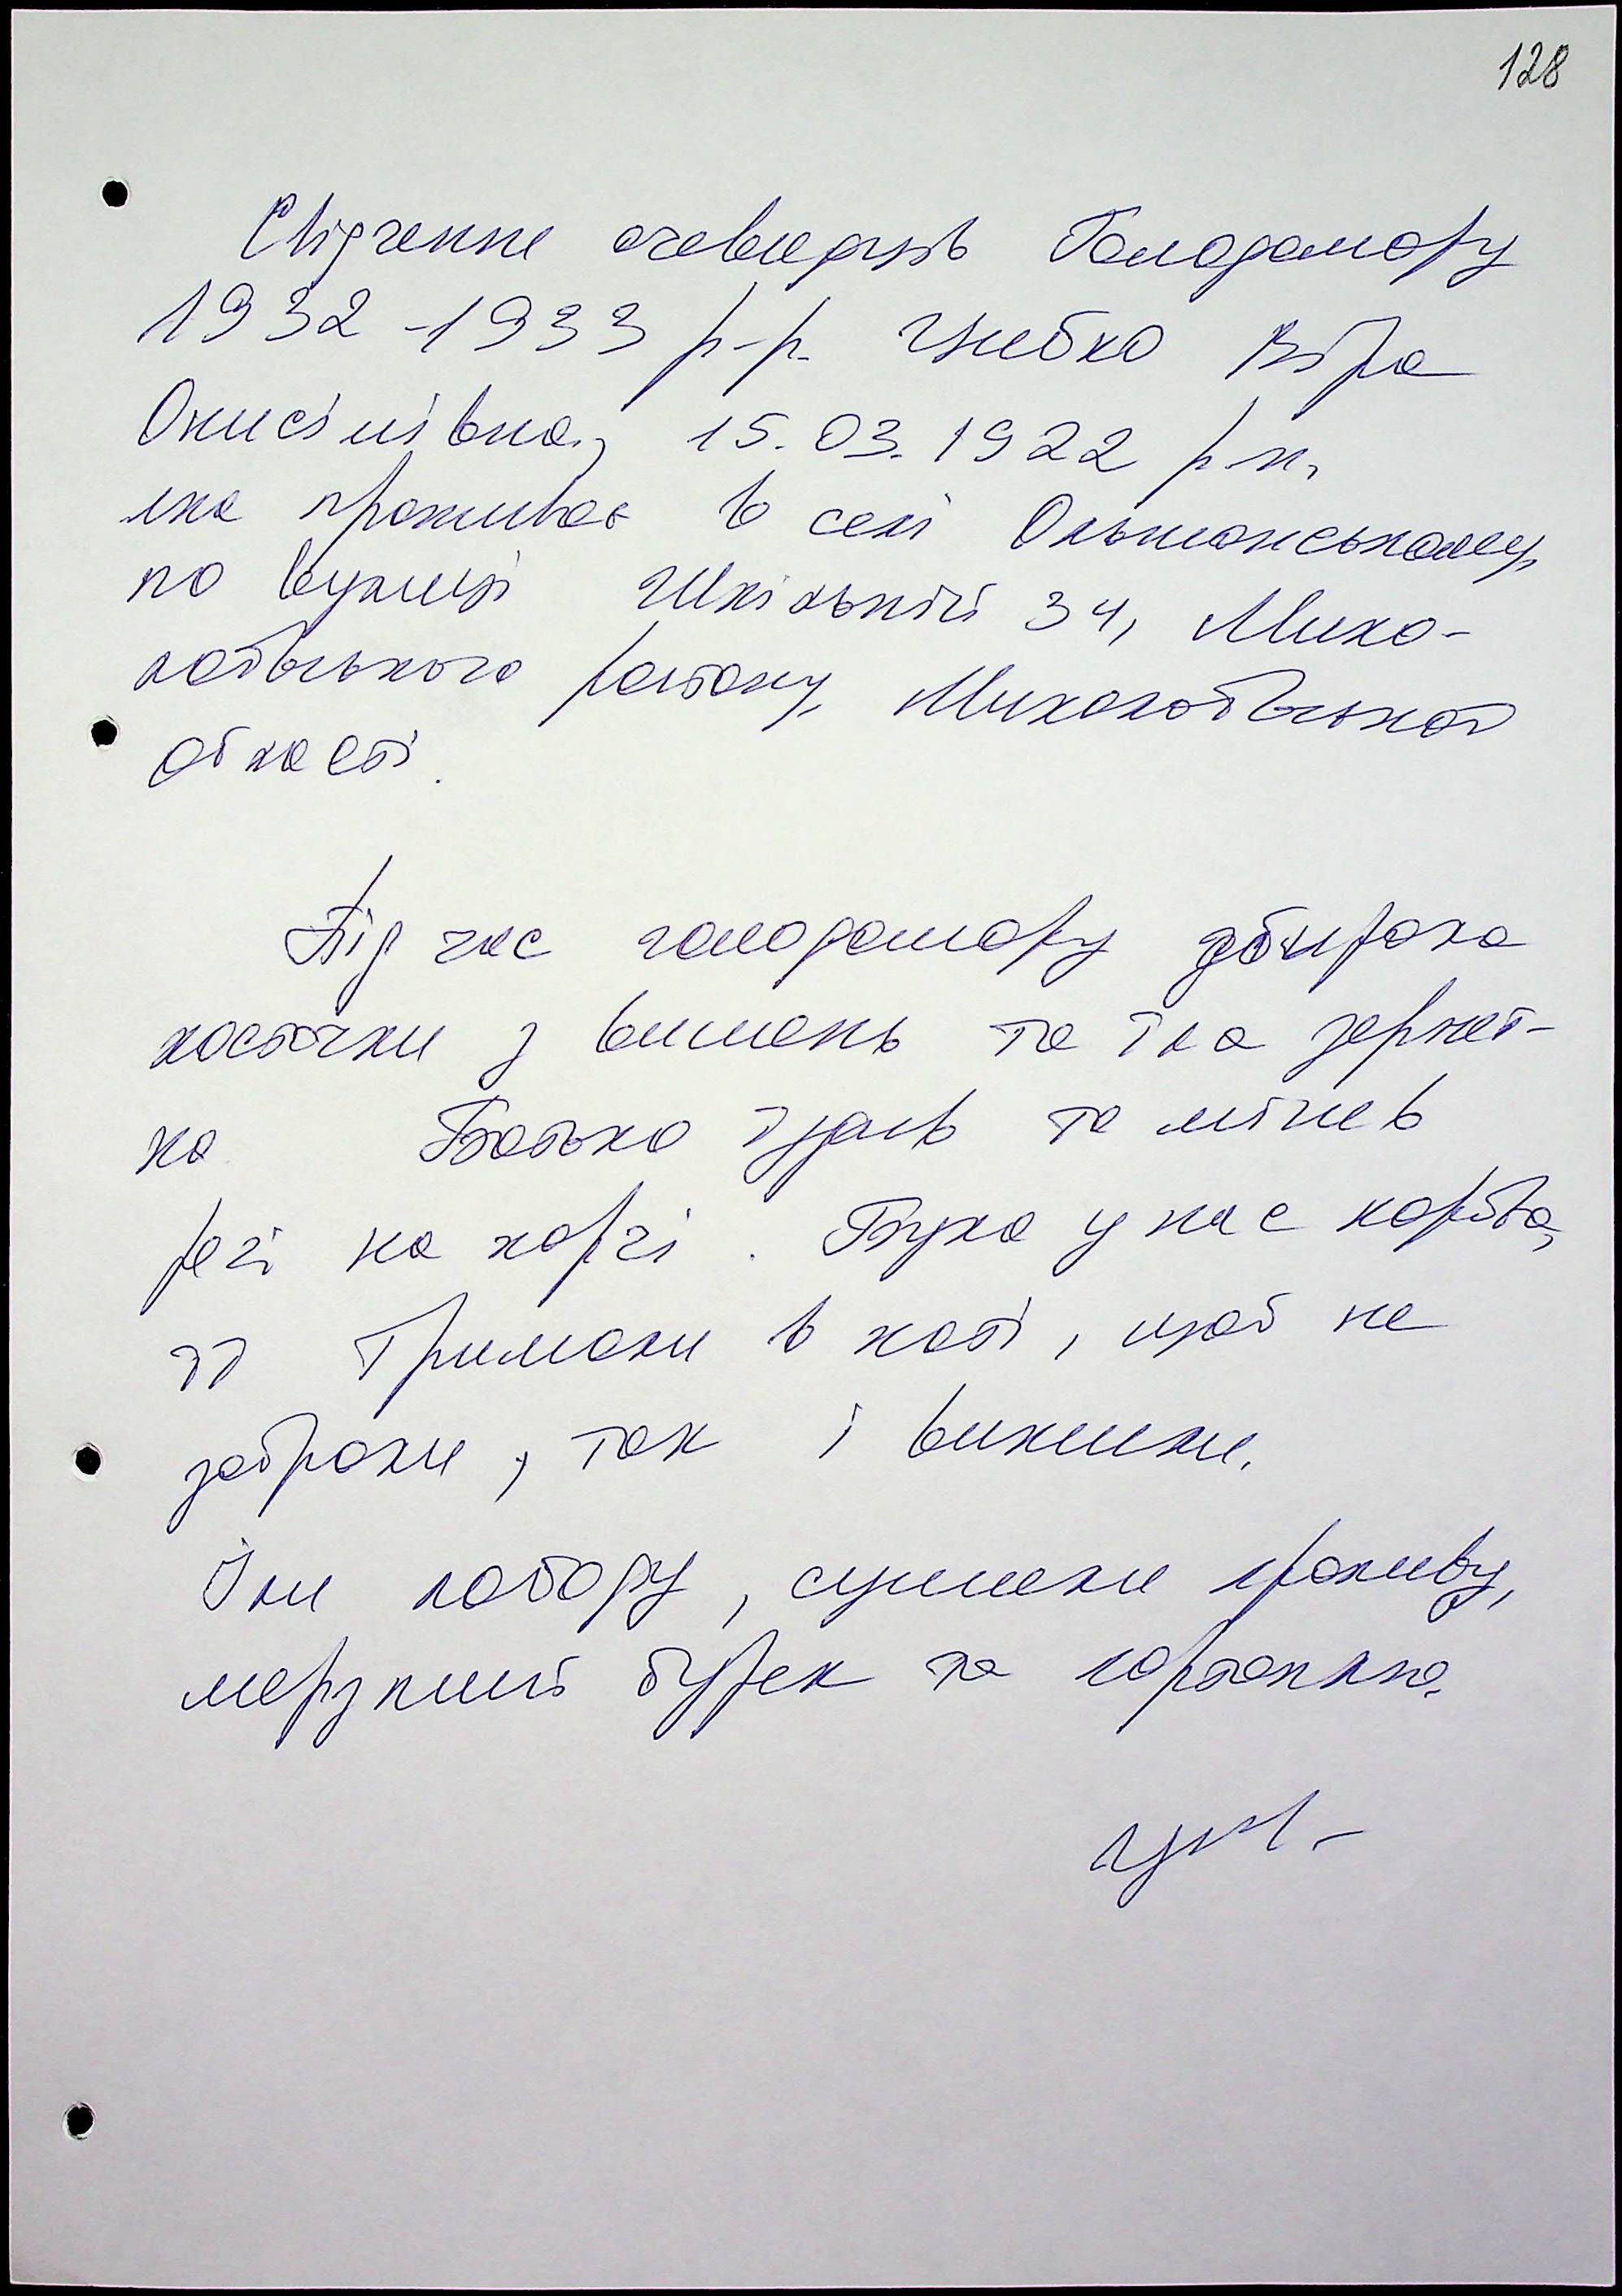 128
Свідчення очевидців Голодомору
1932-1933 р-р. Цибко Віра
Онисімівна, 15.03.1922 р.н,
яка проживає в селі Ольшанському,
по вулиці Шкільній 34, Мико-
лаївського району, Миколаївської
області.
Під час голодомору збирала
косточки з вишень та їла зернят-
ка. Батько їздив та міняв
речі на корчі. Була у нас корова,
її тримали в хаті, щоб не
забрали, так і вижили.
Їли лободу, сушили кропиву,
мерзлий буряк та картоплю.